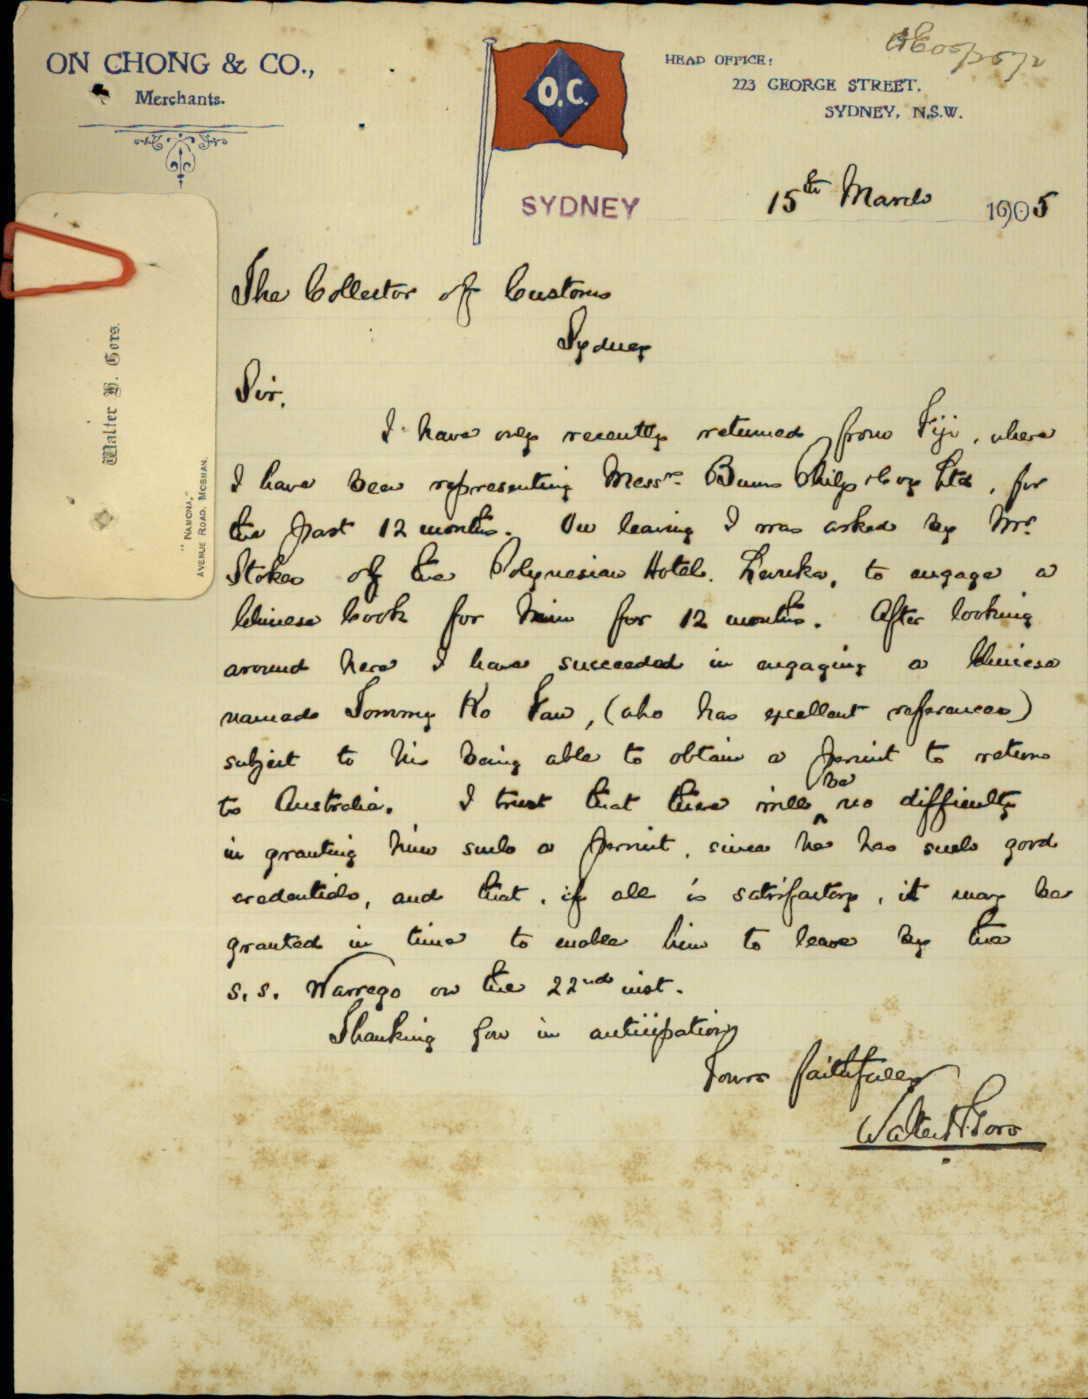 ON CHONG & CO.,
Merchants.
O.C.
HEAD OFFICE:
223 GEORGE STREET.
SYDNEY, N.S.W.
SYDNEY
15th March 1905
Walter H. Gors.
"NAMONA,"
AVENUE ROAD. MOSMAN.
The Collector of Customs
Sydney
Sir,
I have only recently returned from Fiji, where
I have been representing Messrs. Burns Philp & Coy Ltd, for
the past 12 months. On leaving I was asked by Mr.
Stokes of the Polynesian Hotel. Levuka, to engage a
Chinese Cook for him for 12 months. After looking
around here I have succeeded in engaging a Chinese
named Tommy Ko Yaw, (who has excellent references)
subject to his being able to obtain a permit to return
to Australia. I trust that there will be no difficulty
in granting him such a permit, since he has such good
credentials, and that, if all is satisfactory, it may be
granted in time to enable him to leave by the
s.s. Warrego on the 22nd inst.
Thanking you in anticipation
Yours faithfully
Walter H. Gors